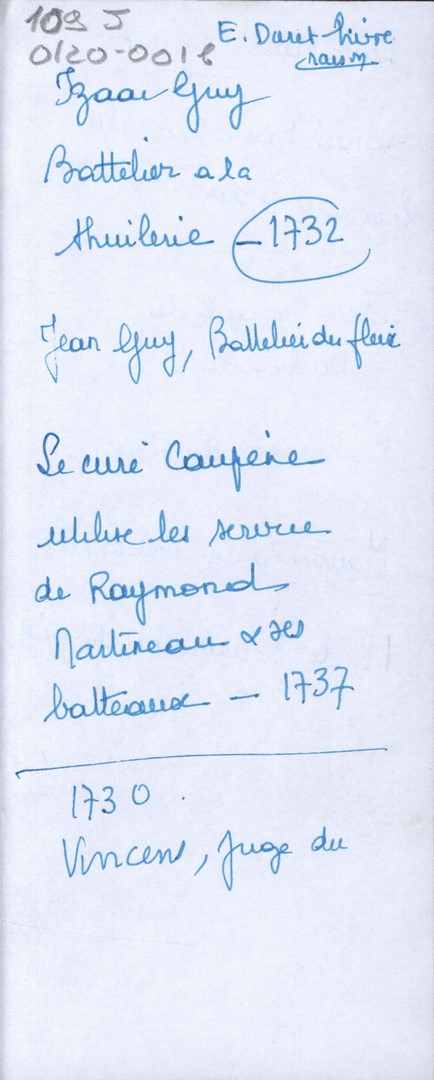 109 J
0120-0018
E. Daret Livre
raison
Izaac Guy
Battelier a la
thuilerie – 1732
Jean Guy, Battelier du fleix
Le curé Caupène
utilise les service
de Raymond
Martineau & ses
batteaux – 1737
1730.
Vincens, juge du